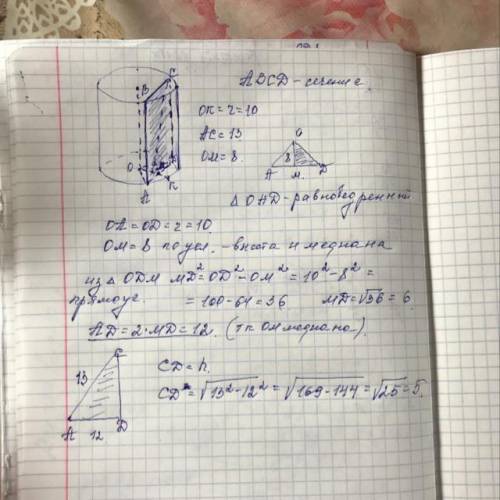 B
C
ABCD - сечение.
OK = r = 10
AC = 13
OM = 8.
O
8
A
M.
D
O
K
A
Δ OAD - равнобедренный
OA = OD = r = 10.
OM = 8 по усл. - высота и медиана
из Δ ODM MD² = OD² - OM² = 10² - 8² =
прямоуг. = 100 - 64 = 36 MD = √36 = 6
AD = 2·MD = 12. (т к OM медиана).
C
13
A
12
D
CD = h.
CD = √13² - 12² = √169 - 144 = √25 = 5.